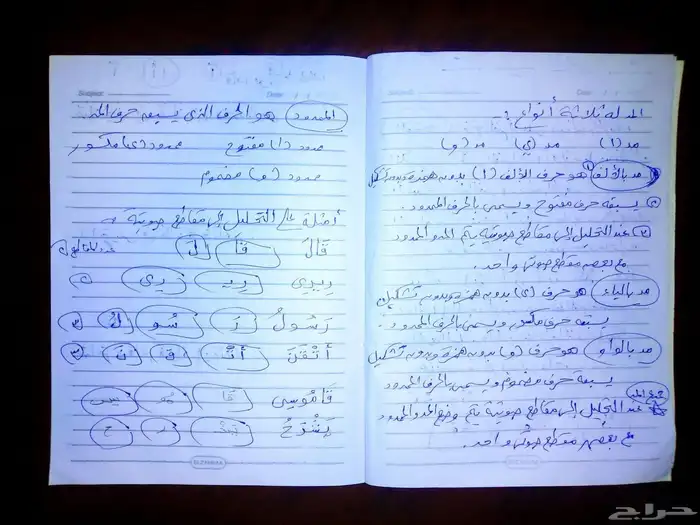 المد له ثلاثة أنواع :-
مد (ا) مد (ي) مد (و)
مد بالألف هو حرف الألف (ا) بدون همزة وبدون تشكيل
يسبقه حرف مفتوح ويسمى بالحرف الممدود.
عند التحليل إلى مقاطع صوتية يتم المد والممدود
مع بعضه مقطع صوتي واحد.
مد بالياء هو حرف (ي) بدون همزة وبدون تشكيل
يسبقه حرف مكسور ويسمى بالحرف الممدود.
مد بالواو هو حرف (و) بدون همزة وبدون تشكيل
يسبقه حرف مضموم ويسمى بالحرف الممدود
عند التحليل إلى مقاطع صوتية يتم وضع المد والممدود
مع بعضهم مقطع صوتي واحد.
الممدود هو الحرف الذي يسبقه حرف المد
ممدود (ا) مفتوح ممدود (ي) مكسور
ممدود (و) مضموم
أمثلة على التحليل إلى مقاطع صوتية
قَالَ قَا لَ
رَسُولُ رَ سُو لُ ٣
أَتْقَنَ أَتْ قَ نَ ٣
قَامُوسِي قَا مُو سِي
يَشْرَحُ يَشْ رَ حُ
حراج